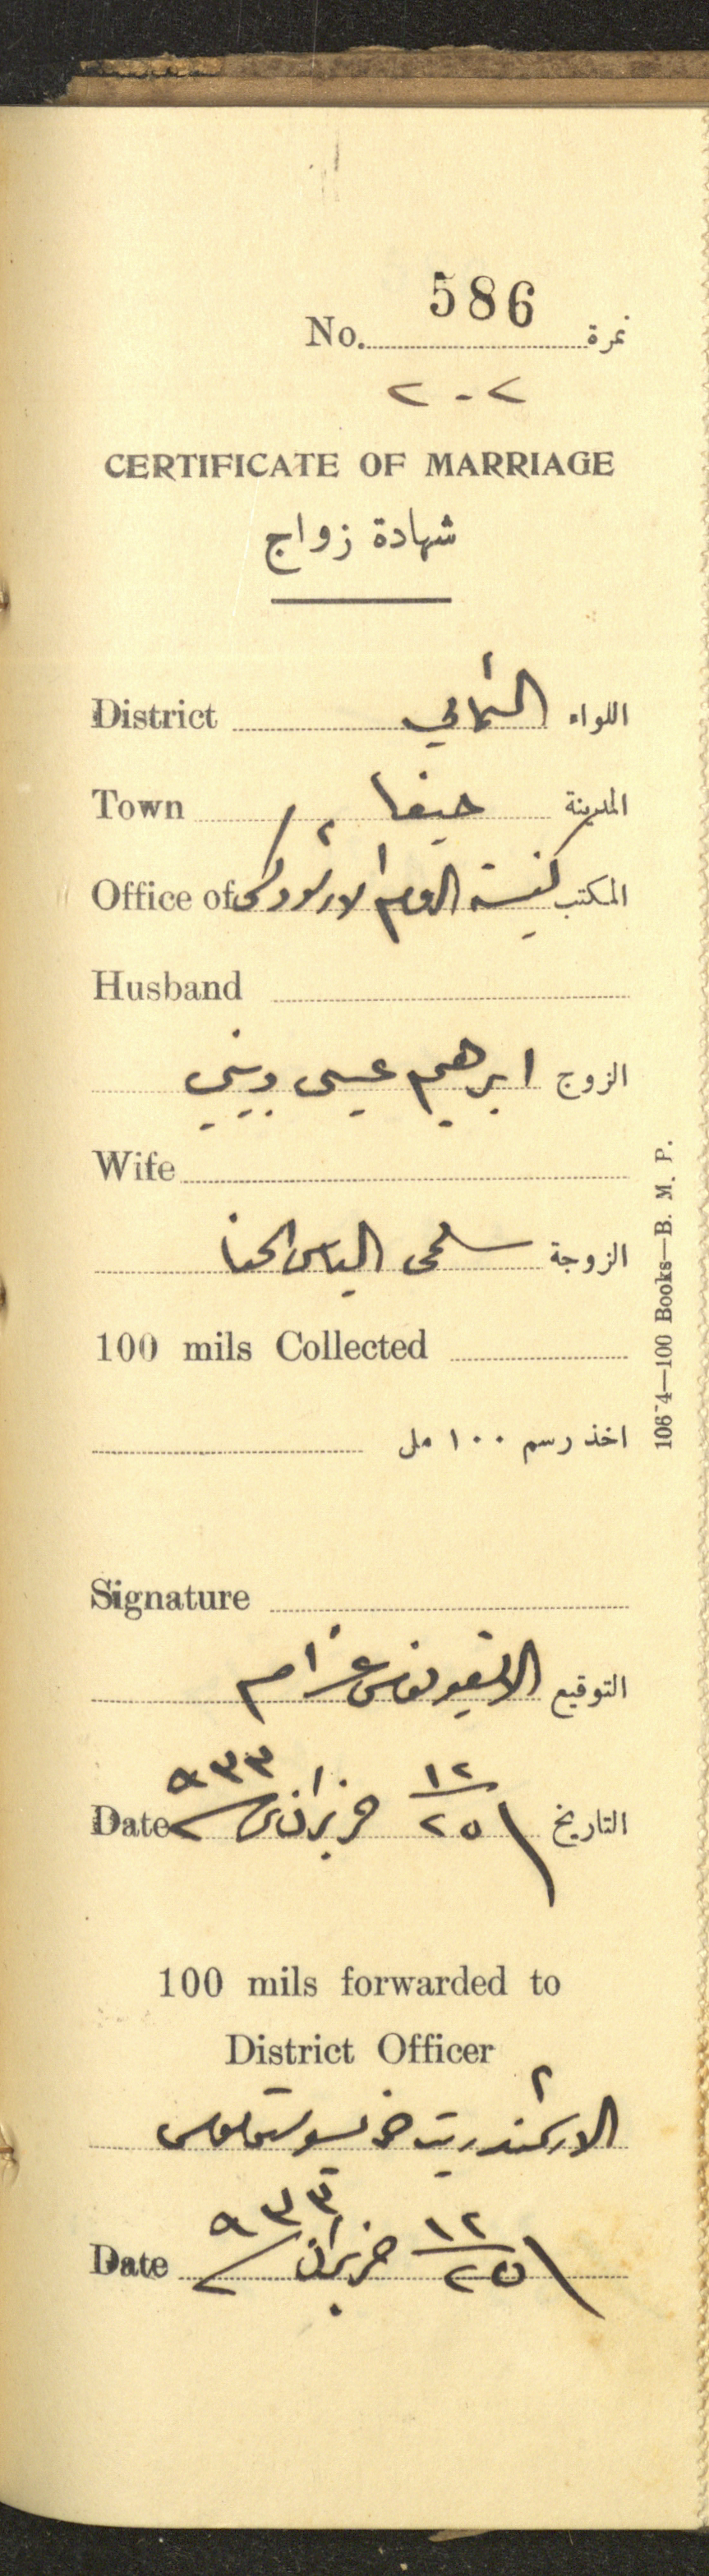 586
No. نمرة
٢٠٢
CERTIFICATE OF MARRIAGE
شهادة زواج
District الشمالي اللواء
Town حيفا المدينة
Office of كنيسة الروم الارثوذكس المكتب
Husband
الزوج ابرهيم عيسى
Wife
الزوجة سلمى الياس الحنا
100 mils Collected
اخذ رسم ١٠٠ مل
106 4—100 Books—B. M. P.
Signature
التوقيع
Date ١٢/٢٥ حزيران سنة ٩٣٣ التاريخ
100 mils forwarded to
District Officer
الارشمندريت
Date ١٢/٢٥ حزيران ٩٣٣